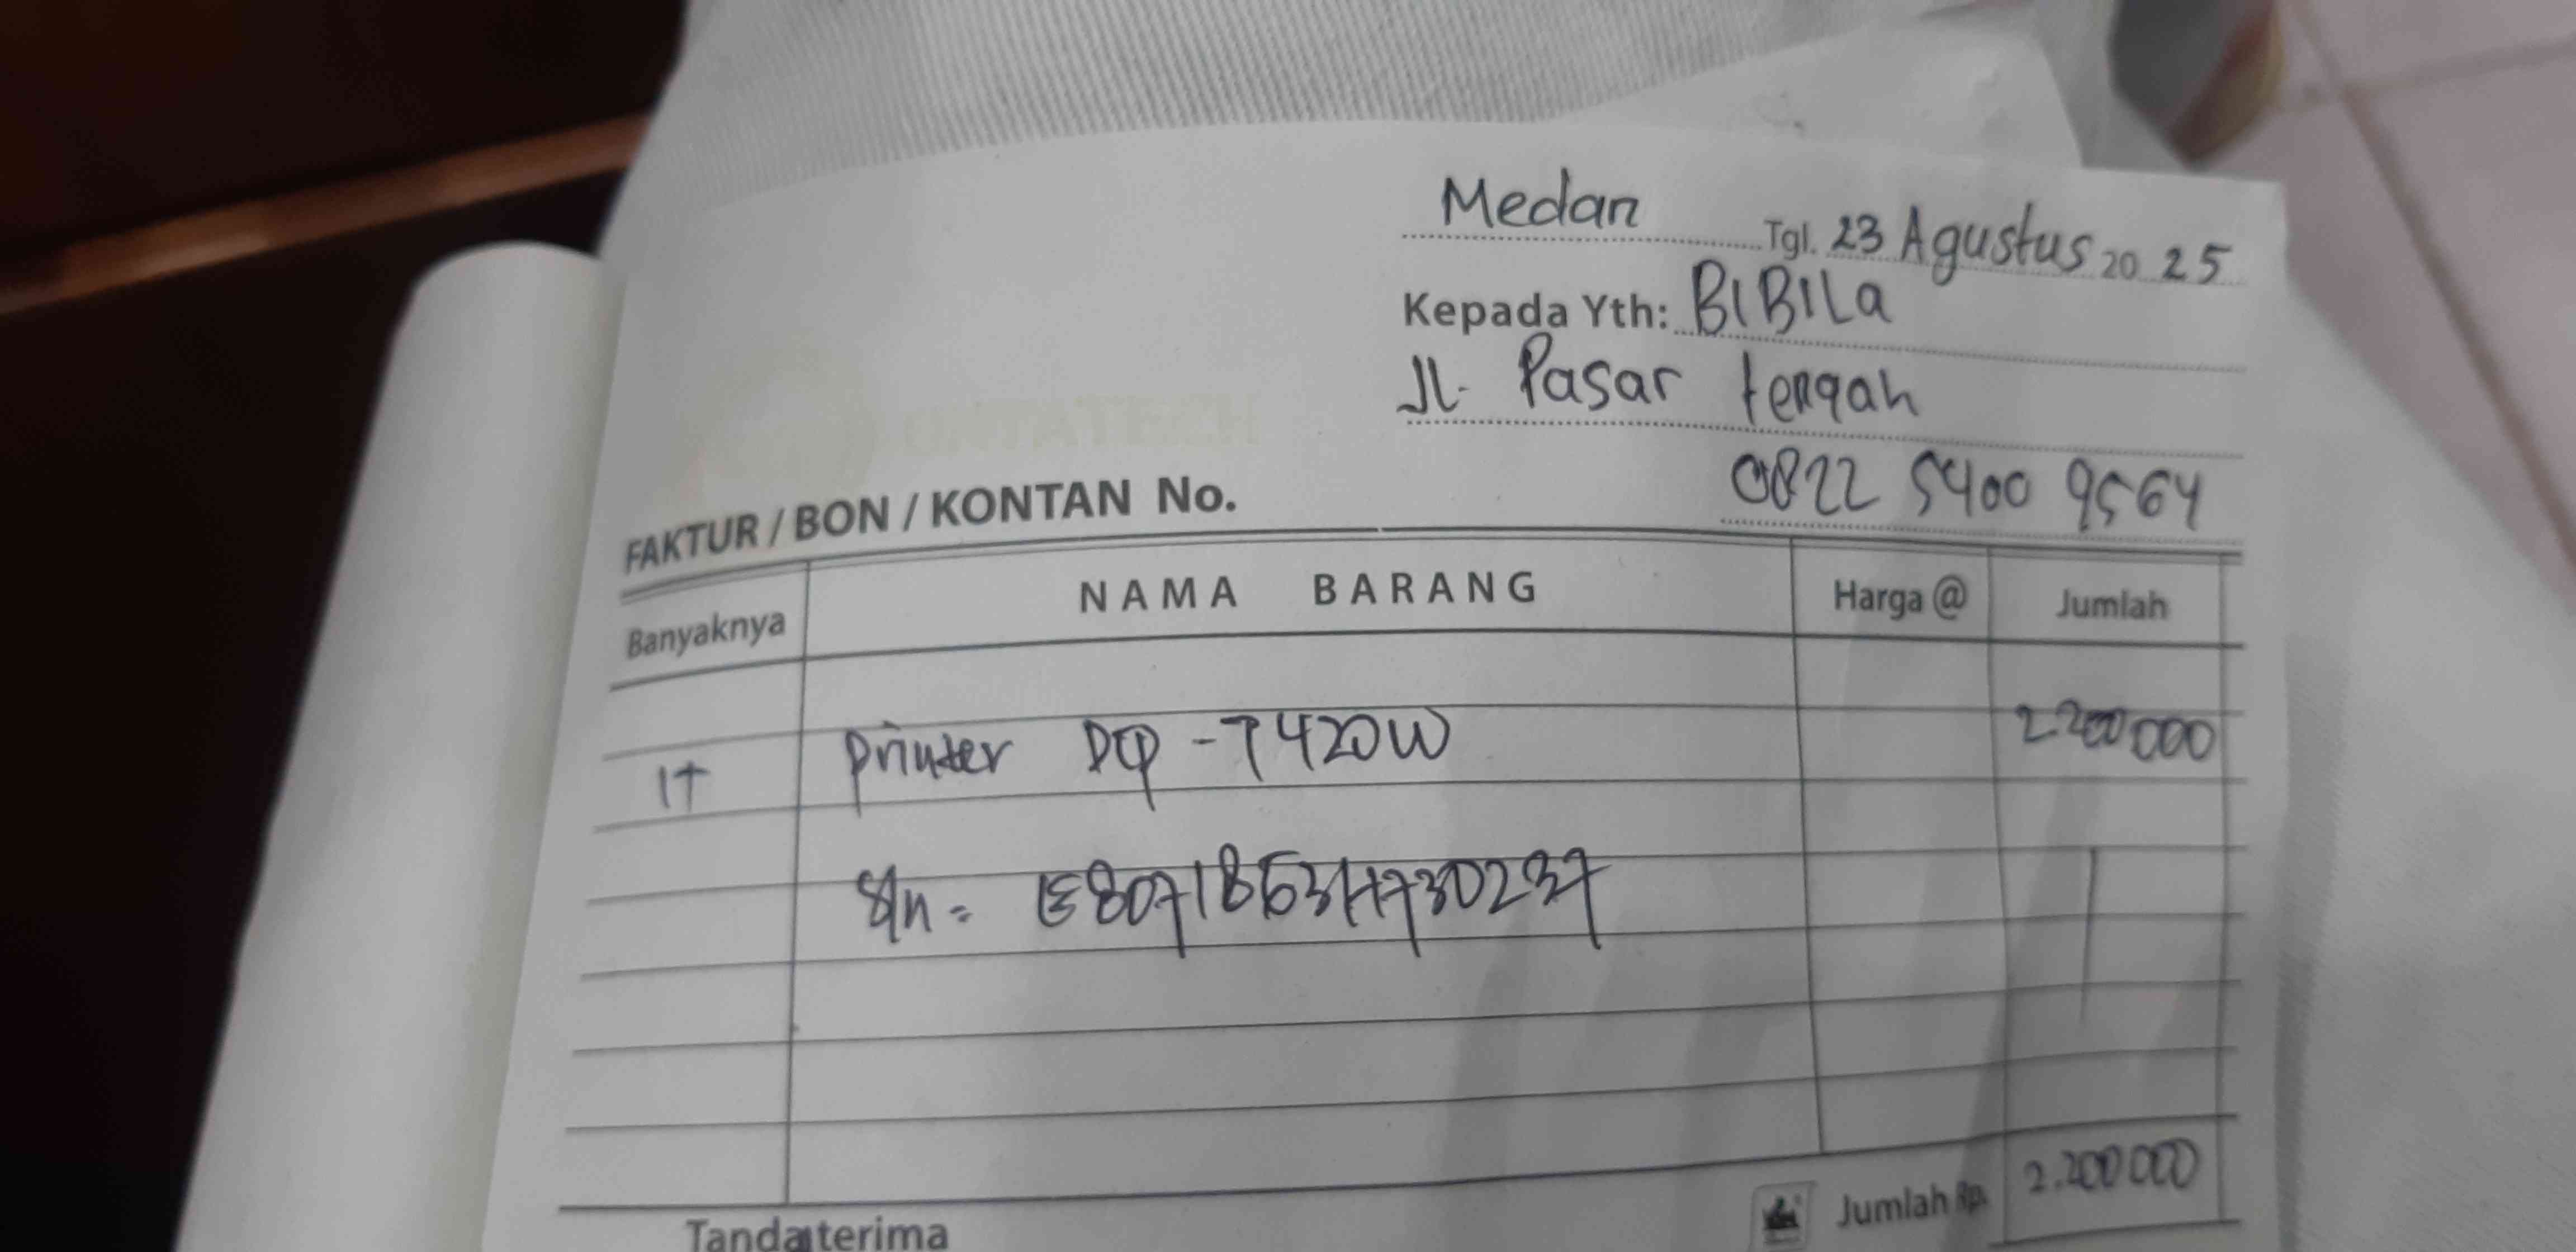 Medan Tgl. 23 Agustus 20 25
Kepada Yth: BIBILa
Jl. Pasar tengah
0822 5400 9564
FAKTUR / BON / KONTAN No.
Banyaknya NAMA BARANG Harga @ Jumlah
1+ Printer DCP - T420W 2.200 000
S/n =
Jumlah Rp. 2.200 000
Tanda terima